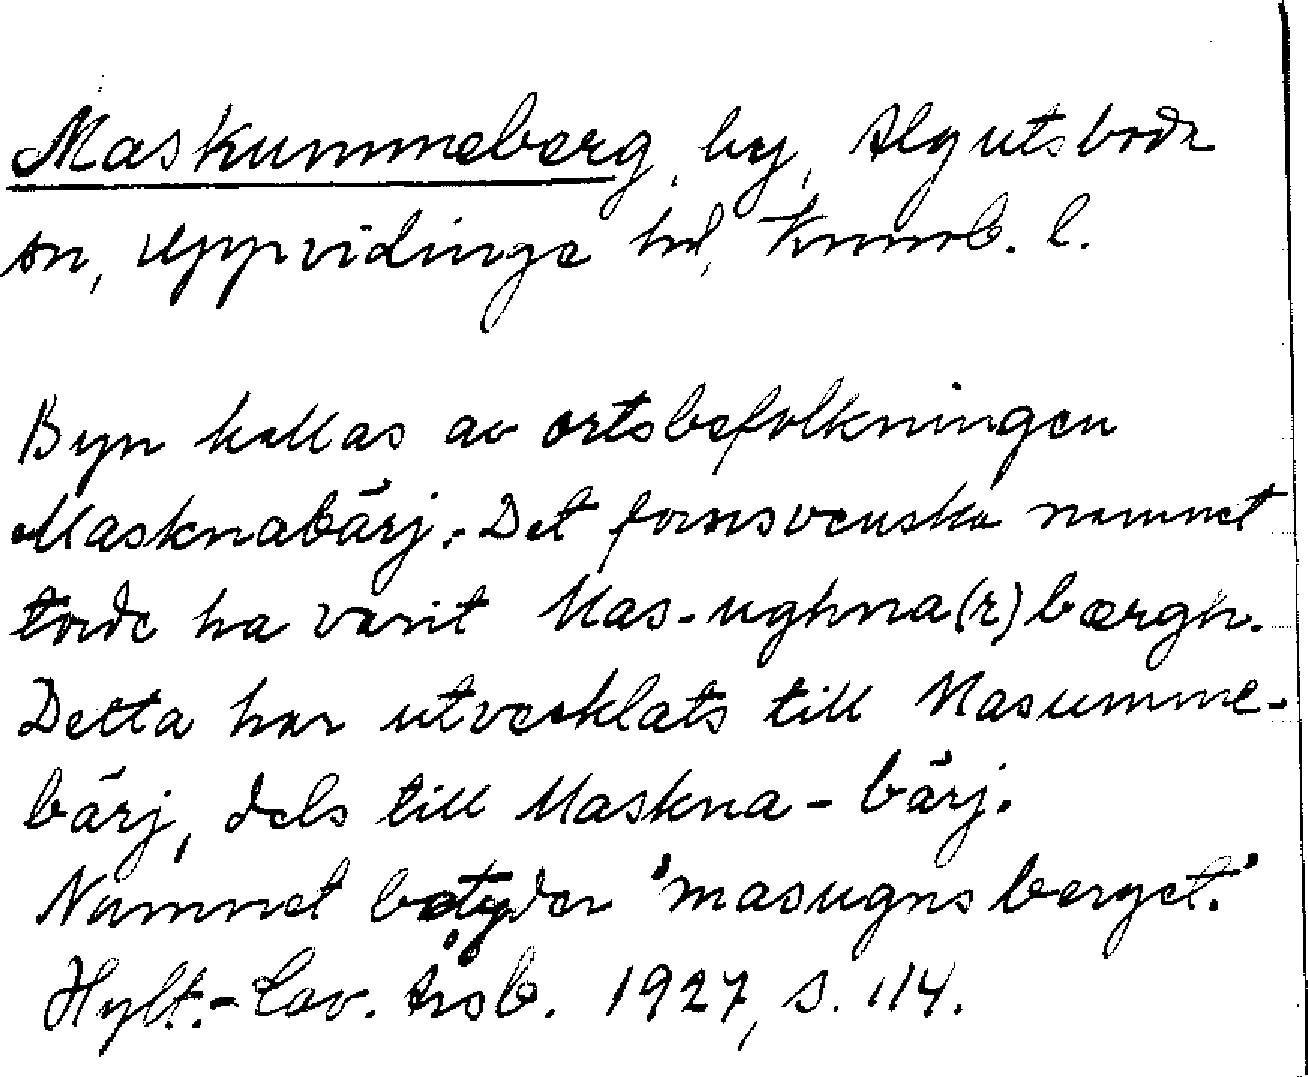 Maskummeberg, by, Algutsboda
sn, Uppvidinge hd, Kronob. l.
Byn kallas av ortsbefolkningen
Masknabärj. Det fornsvenska namnet
torde ha varit Mas-ughna(r)bærgh.
Detta har utvecklats till Masumme-
bärj, dels till Maskna-bärj.
Namnet betyder 'masugnsberget.'
Hylt.-Cav. årsb. 1927, s. 114.